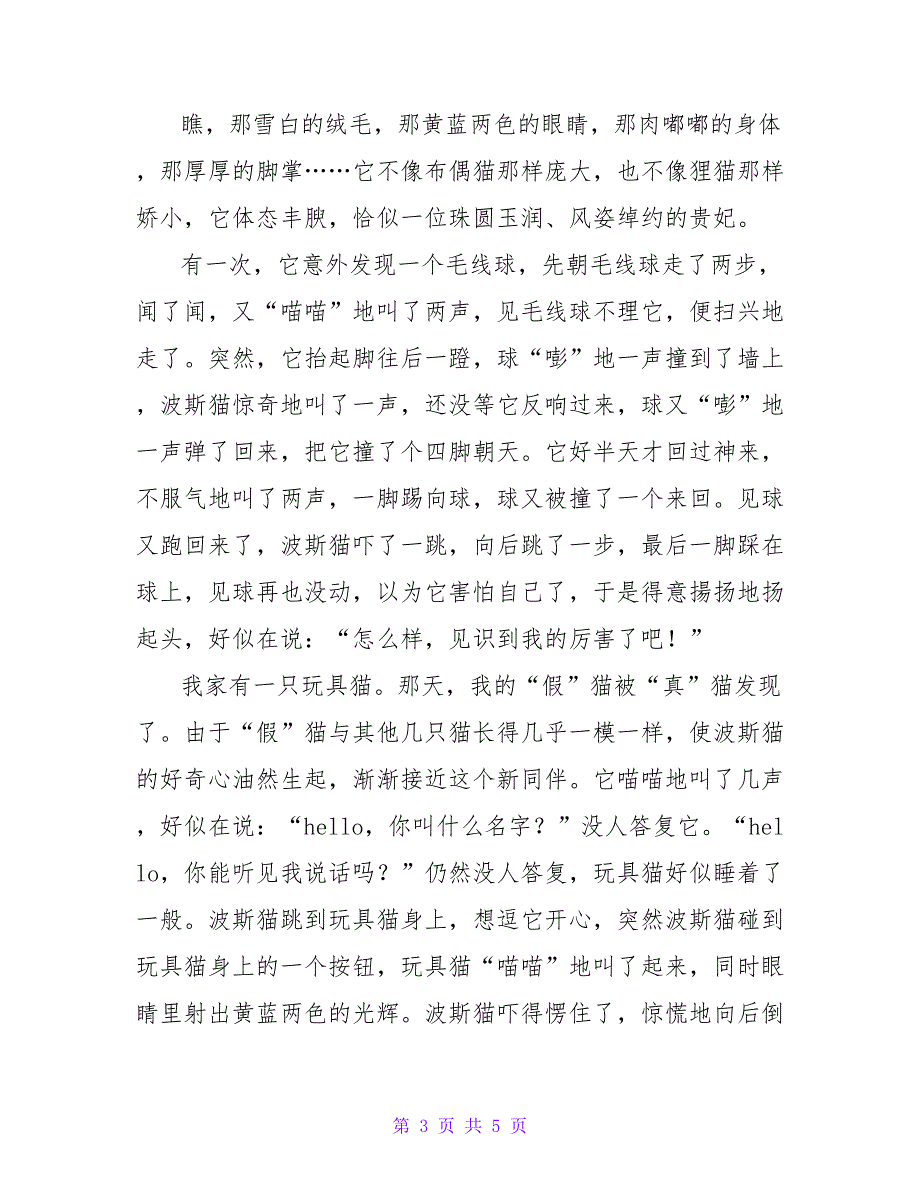 瞧，那雪白的绒毛，那黄蓝两色的眼睛，那肉嘟嘟的身体
，那厚厚的脚掌……它不像布偶猫那样庞大，也不像狸猫那样
娇小，它体态丰腴，恰似一位珠圆玉润、风姿绰约的贵妃。
有一次，它意外发现一个毛线球，先朝毛线球走了两步，
闻了闻，又“喵喵”地叫了两声，见毛线球不理它，便扫兴地
走了。突然，它抬起脚往后一蹬，球“嘭”地一声撞到了墙上
，波斯猫惊奇地叫了一声，还没等它反响过来，球又“嘭”地
一声弹了回来，把它撞了个四脚朝天。它好半天才回过神来，
不服气地叫了两声，一脚踢向球，球又被撞了一个来回。见球
又跑回来了，波斯猫吓了一跳，向后跳了一步，最后一脚踩在
球上，见球再也没动，以为它害怕自己了，于是得意揚扬地扬
起头，好似在说：“怎么样，见识到我的厉害了吧！”
我家有一只玩具猫。那天，我的“假”猫被“真”猫发现
了。由于“假”猫与其他几只猫长得几乎一模一样，使波斯猫
的好奇心油然生起，渐渐接近这个新同伴。它喵喵地叫了几声
，好似在说：“hello，你叫什么名字？”没人答复它。“hel
lo，你能听见我说话吗？”仍然没人答复，玩具猫好似睡着了
一般。波斯猫跳到玩具猫身上，想逗它开心，突然波斯猫碰到
玩具猫身上的一个按钮，玩具猫“喵喵”地叫了起来，同时眼
睛里射出黄蓝两色的光辉。波斯猫吓得愣住了，惊慌地向后倒
第 3 页 共 5 页